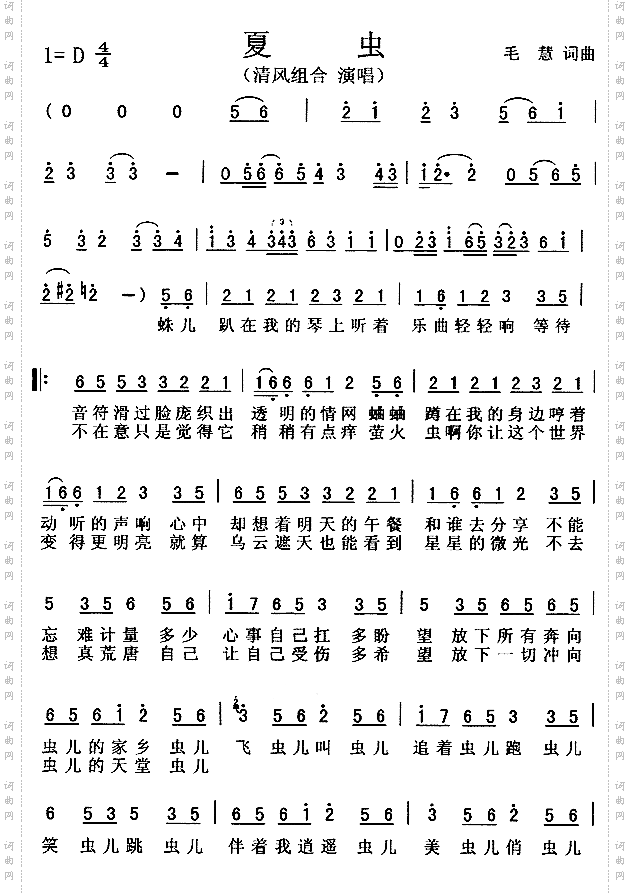 夏 虫
1= D 4/4
毛 慧 词曲
（清风组合 演唱）
( 0 0 0 5 6 | 2 1 2 3 5 6 1 |
2 3 3 3 − | 0 5 6 6 5 4 3 4 3 | 1 2· 2 0 5 6 5 |
5 3 2 3 3 4 | 1 3 4 3 4 3 6 3 1 1 | 0 2 3 1 6 5 3 2 3 6 1 |
2 #2 ♮2 − ) 5 6 | 2 1 2 1 2 3 2 1 | 1 6 1 2 3 3 5 |
蛛儿 趴在我的琴上听着 乐曲轻轻响 等待
6 5 5 3 3 2 2 1 | 1 6 6 6 1 1 2 5 6 | 2 1 2 1 2 3 2 1 |
音符滑过脸庞织出 透明的情网 蛐蛐 蹲在我的身边哼着
不在意只是觉得它 稍稍有点痒 萤火 虫啊你让这个世界
1 6 6 1 2 3 3 5 | 6 5 5 3 3 2 2 1 | 1 6 6 1 2 3 5 |
动听的声响 心中 却想着明天的午餐 和谁去分享 不能
变得更明亮 就算 乌云遮天也能看到 星星的微光 不去
5 3 5 6 5 6 | 1 7 6 5 3 3 5 | 5 3 5 6 5 6 5 |
忘 难计量 多少 心事自己扛 多盼 望 放下所有奔向
想 真荒唐 自己 让自己受伤 多希 望 放下一切冲向
5 6 6 1 2 5 6 | 3 5 6 2 5 6 | 1 7 6 5 3 3 5 |
虫儿的家乡 虫儿 飞 虫儿叫 虫儿 追着虫儿跑 虫儿
虫儿的天堂 虫儿
6 5 3 5 3 5 | 5 5 5 1 2 5 6 | 3 5 6 2 5 6 |
笑 虫儿跳 虫儿 伴着我逍遥 虫儿 美 虫儿俏 虫儿